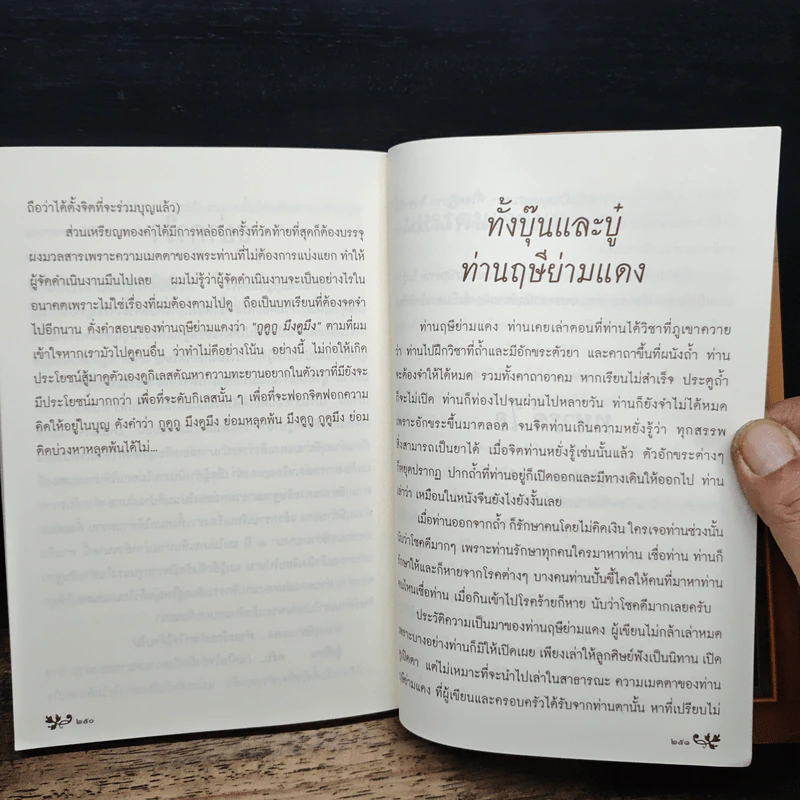 ถือว่าได้ตั้งจิตที่จะร่วมบุญแล้ว)
ส่วนเหรียญทองคำได้มีการหล่ออีกครั้งที่วัดท้ายที่สุดก็ต้องบรรจุ
ผงมวลสารเพราะความเมตตาของพระท่านที่ไม่ต้องการแบ่งแยก ทำให้
ผู้จัดดำเนินงานมึนไปเลย ผมไม่รู้ว่าผู้จัดดำเนินงานจะเป็นอย่างไรใน
อนาคตเพราะไม่ใช่เรื่องที่ผมต้องตามไปดู ถือเป็นบทเรียนที่ต้องจดจำ
ไปอีกนาน ดั่งคำสอนของท่านฤษีย่ามแดงว่า "กูดูกู มึงดูมึง" ตามที่ผม
เข้าใจหากเรามัวไปดูคนอื่น ว่าทำไม่ดีอย่างโน้น อย่างนี้ ไม่ก่อให้เกิด
ประโยชน์สู้มาดูตัวเองดูกิเลสตัณหาความทะยานอยากในตัวเราที่มียังจะ
มีประโยชน์มากกว่า เพื่อที่จะดับกิเลสนั้น ๆ เพื่อที่จะฟอกจิตฟอกความ
คิดให้อยู่ในบุญ ดังคำว่า กูดูกู มึงดูมึง ย่อมหลุดพ้น มึงดูกู กูดูมึง ย่อม
ติดบ่วงหาหลุดพ้นได้ไม่...
๒๕๐
ทั้งบุ๊นและบู๋
ท่านฤษีย่ามแดง
ท่านฤษีย่ามแดง ท่านเคยเล่าตอนที่ท่านได้วิชาที่ภูเขาควาย
ว่า ท่านไปฝึกวิชาที่ถ้ำและมีอักขระตัวยา และคาถาขึ้นที่ผนังถ้ำ ท่าน
จะต้องจำให้ได้หมด รวมทั้งคาถาอาคม หากเรียนไม่สำเร็จ ประตูถ้ำ
ก็จะไม่เปิด ท่านก็ท่องไปจนผ่านไปหลายวัน ท่านก็ยังจำไม่ได้หมด
เพราะอักขระขึ้นมาตลอด จนจิตท่านเกิดความหยั่งรู้ว่า ทุกสรรพ
สิ่งสามารถเป็นยาได้ เมื่อจิตท่านหยั่งรู้เช่นนั้นแล้ว ตัวอักขระต่างๆ
ก็หยุดปรากฏ ปากถ้ำที่ท่านอยู่ก็เปิดออกและมีทางเดินให้ออกไป ท่าน
เล่าว่า เหมือนในหนังจีนยังไงยังงั้นเลย
เมื่อท่านออกจากถ้ำ ก็รักษาคนโดยไม่คิดเงิน ใครเจอท่านช่วงนั้น
นับว่าโชคดีมากๆ เพราะท่านรักษาทุกคนใครมาหาท่าน เชื่อท่าน ท่านก็
รักษาให้และก็หายจากโรคต่างๆ บางคนท่านปั้นขี้ไคลให้คนที่มาหาท่าน
คนไหนเชื่อท่าน เมื่อกินเข้าไปโรคร้ายก็หาย นับว่าโชคดีมากเลยครับ
ประวัติความเป็นมาของท่านฤษีย่ามแดง ผู้เขียนไม่กล้าเล่าหมด
เพราะบางอย่างท่านก็มิให้เปิดเผย เพียงเล่าให้ลูกศิษย์ฟังเป็นนิทาน เปิด
หูเปิดตา แต่ไม่เหมาะที่จะนำไปเล่าในสาธารณะ ความเมตตาของท่าน
ฤษีย่ามแดง ที่ผู้เขียนและครอบครัวได้รับจากท่านตานั้น หาที่เปรียบไม่
๒๕๑